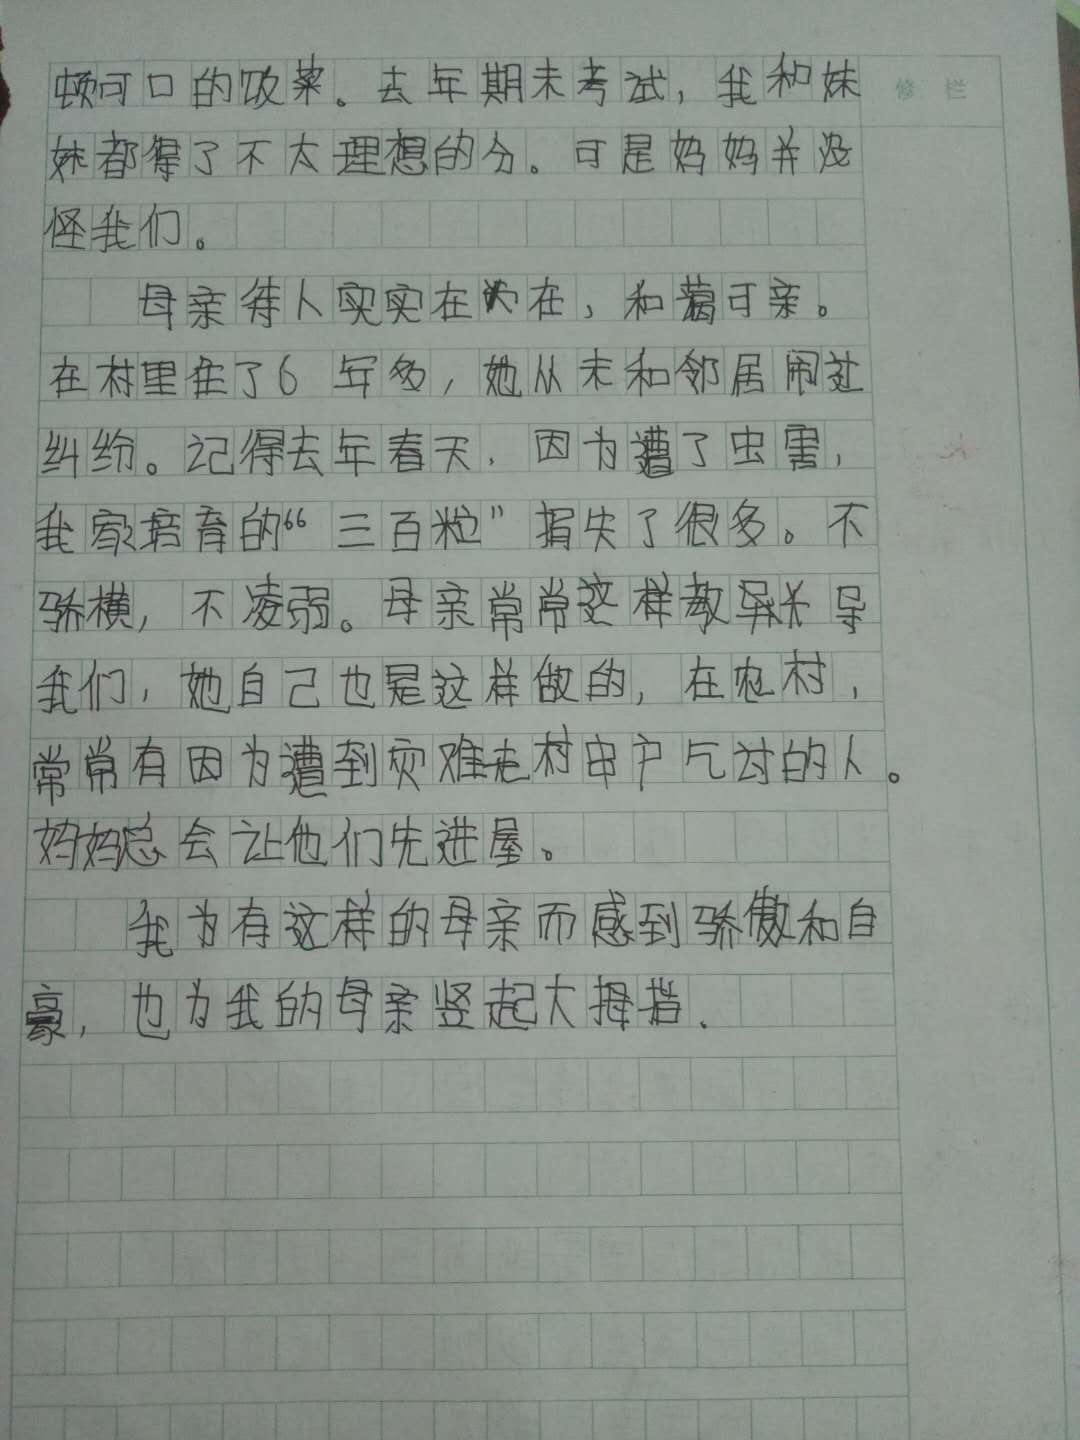 顿可口的饭菜。去年期末考试，我和妹
修 栏
妹都得了不太理想的分。可是妈妈并没
怪我们。
母亲待人实实在在，和蔼可亲。
在村里住了6年多，她从未和邻居闹过
纠纷。记得去年春天，因为遭了虫害，
我家培育的“三百粒”损失了很多。不
骄横，不凌弱。母亲常常这样教导
我们，她自己也是这样做的，在农村，
常常有因为遭到灾难走村串户乞讨的人。
妈妈总会让他们先进屋。
我为有这样的母亲而感到骄傲和自
豪，也为我的母亲竖起大拇指.